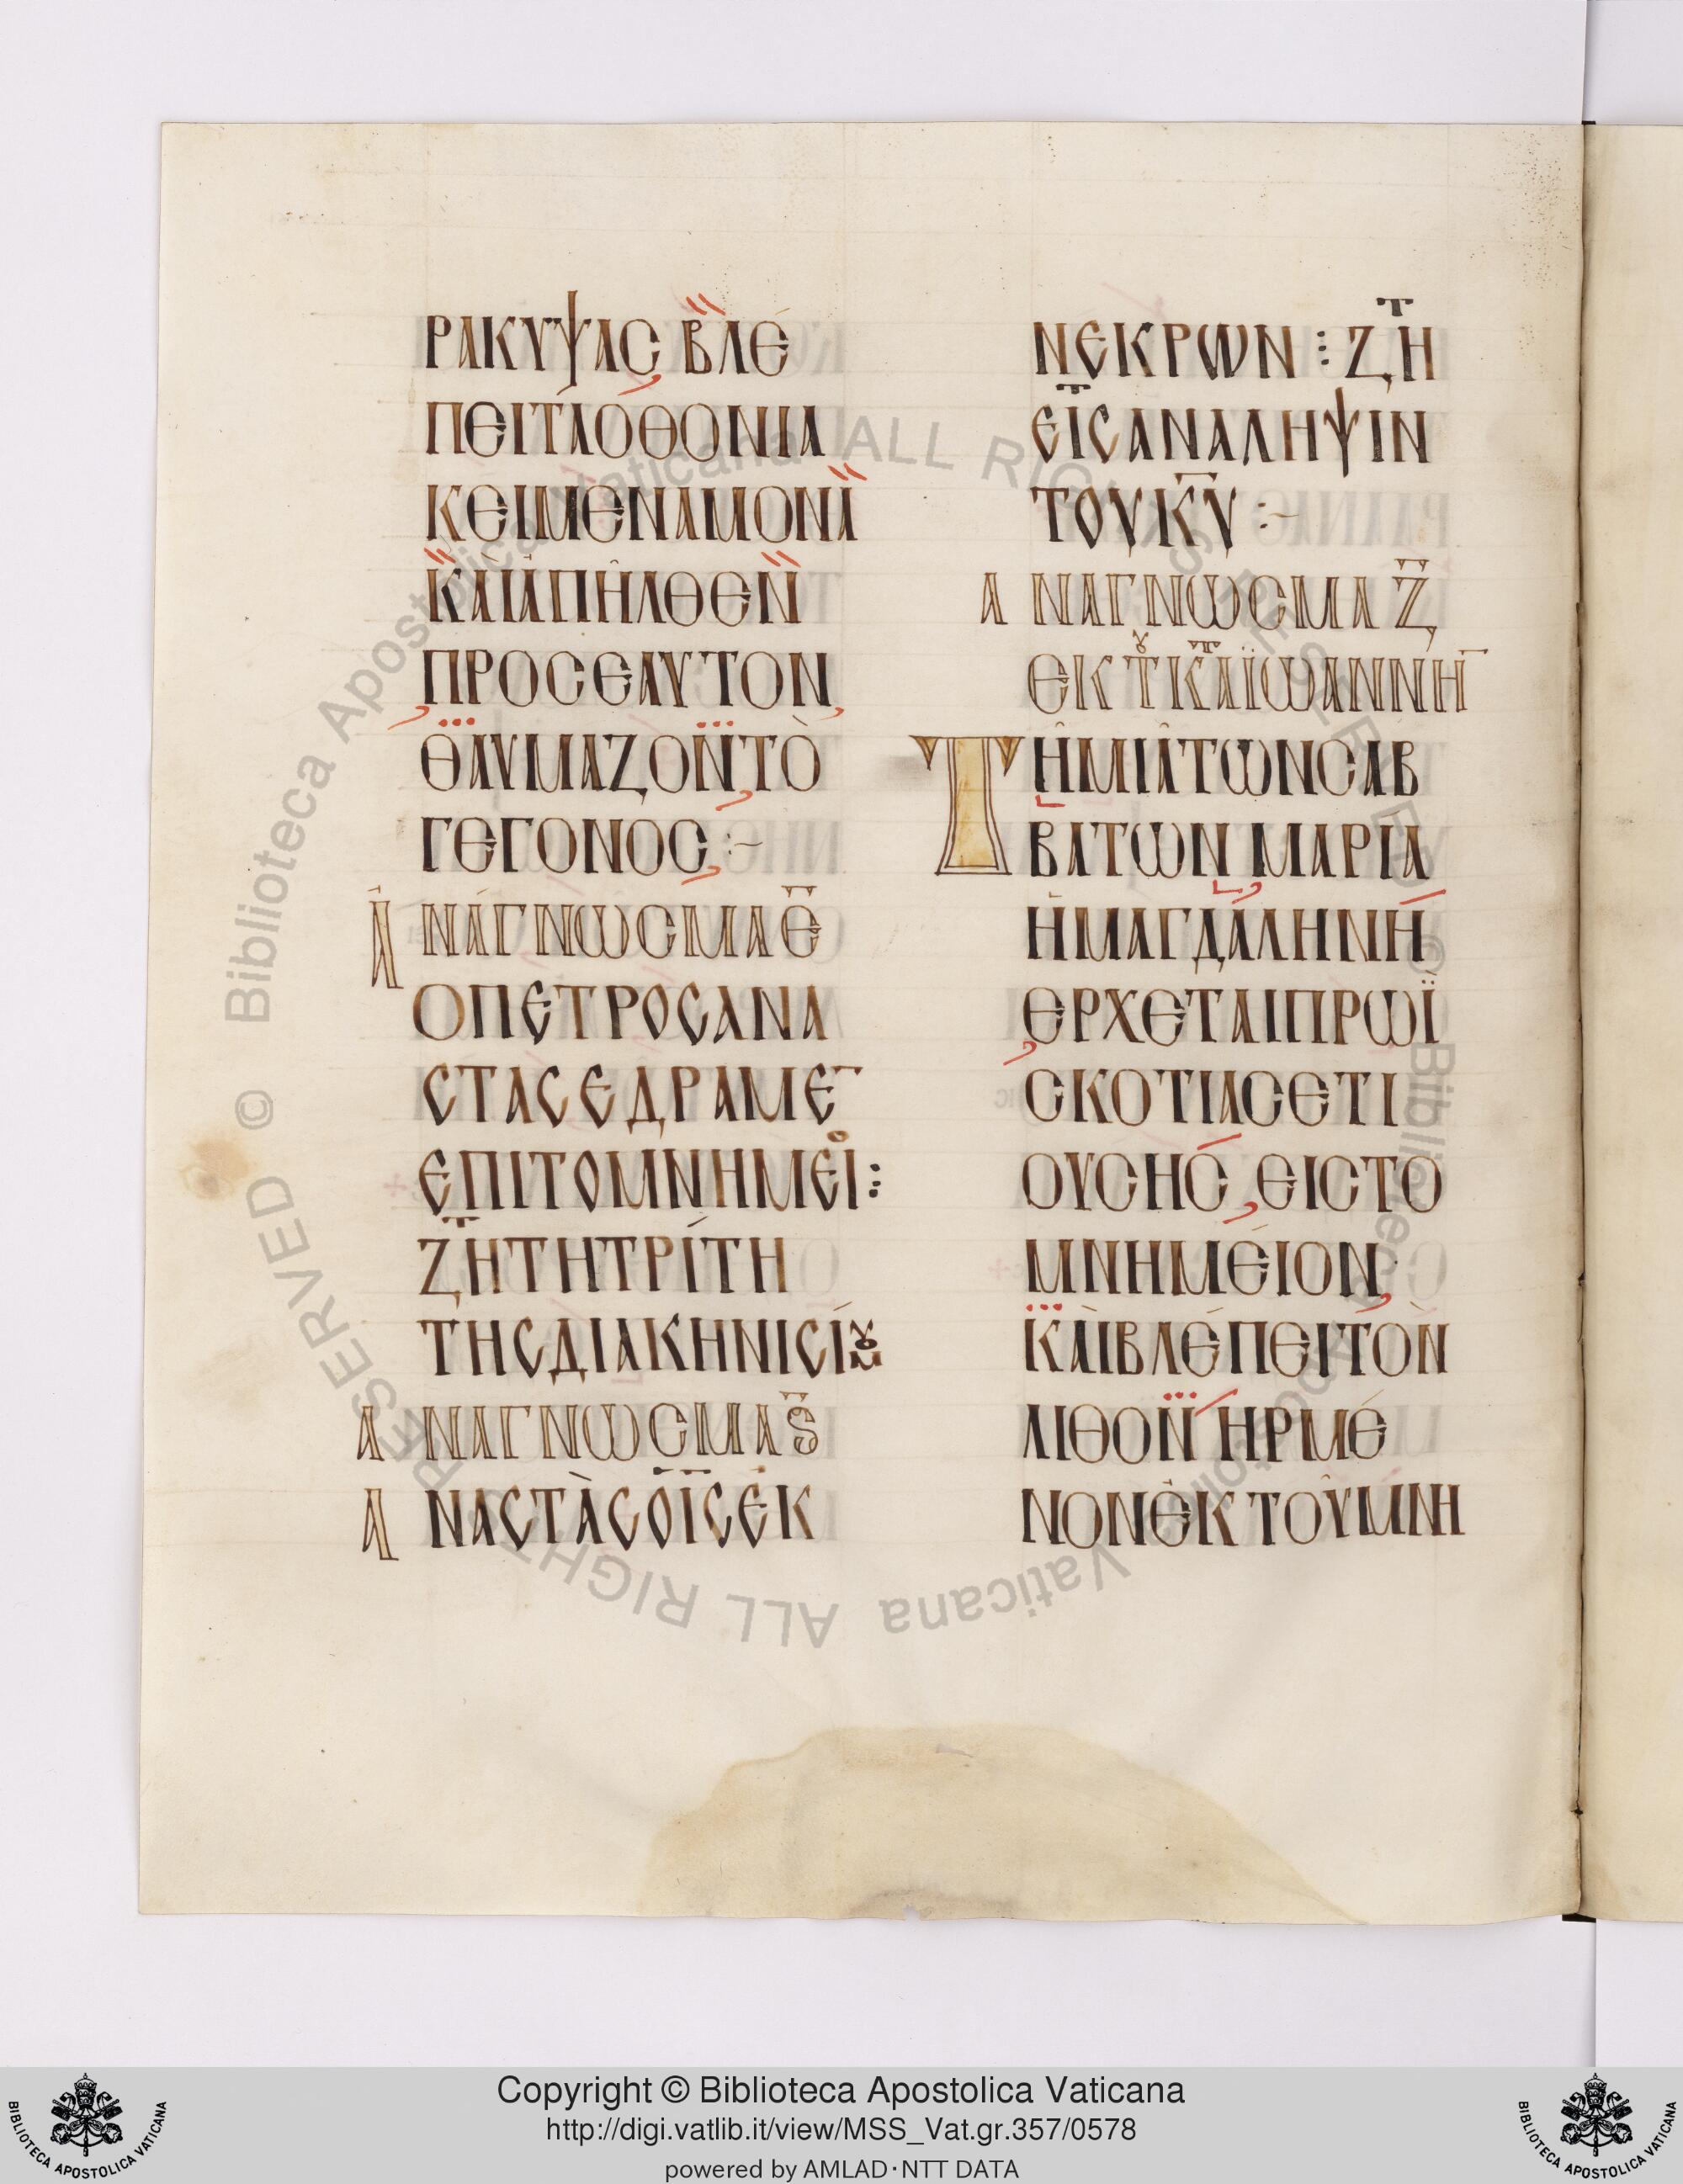 ΡΑΚΥΨΑС ΒΛΈ
ΠΕΙΤᾺΟΘΟΝΙΑ
ΚΕΙΜΕΝΑΜΟΝΑ
ΚΑῚἈΠΗ̂ΛΘΕΝ
ΠΡΟСΕΑΥΤΟΝ
ΘΑΥΜΑΖΟΝΤῸ
ΓΕΓΟΝΟС :~
ἈΝΆΓΝΩСΜΑ Ε̄
ΟΠΕΤΡΟСΑΝΑ
СΤΑСΕΔΡΑΜΕ¯
ΕΠΙΤΟΜΝΗΜΕΙ̊ ⁝
ΖΗ̄ΤΗΤΡΊΤΗ
ΤΗСΔΙΑΚΗΝΙСΊΜȢ
ΑΝΑΓΝΩСΜΑ Ϛ̄
ΑΝΑСΤᾺСΟῙСἘΚ
ΝΕΚΡΩΝ ⁝ ΖΗᵀ
ΕῙСΑΝΑΛΗΨΙΝ
ΤΟΥΚ̄Ῡ :~
ΑΝΑΓΝΩСΜΑ Ζ̄
ΕΚ ΤȢ ΚᾹΪΩΑΝΝΗ¯
ΤΗ̂ΜΙΑ̂ΤΩΝСΑΒ
ΒΑΤΩΝ ΜΑΡΙΑ
ἩΜΑΓΔΑΛΗΝῊ
ΕΡΧΕΤΑΙΠΡΩΪ
СΚΟΤΙΑСΕΤΙ
ΟΥСΗС ΕΙСΤΟ
ΜΝΗΜΕΊΟΝ
ΚΑῚΒΛΈΠΕΙΤῸΝ
ΛΙΘΟΝ ΗΡΜΈ
ΝΟΝἘΚ ΤΟΥ̂ΜΝΗ
Copyright © Biblioteca Apostolica Vaticana
http://digi.vatlib.it/view/MSS_Vat.gr.357/0578
powered by AMLAD·NTT DATA
BIBLIOTECA APOSTOLICA VATICANA
BIBLIOTECA APOSTOLICA VATICANA
© Biblioteca Apostolica Vaticana ALL RIGHTS RESERVED © Biblioteca Apostolica Vaticana ALL RIGHTS RESERVED